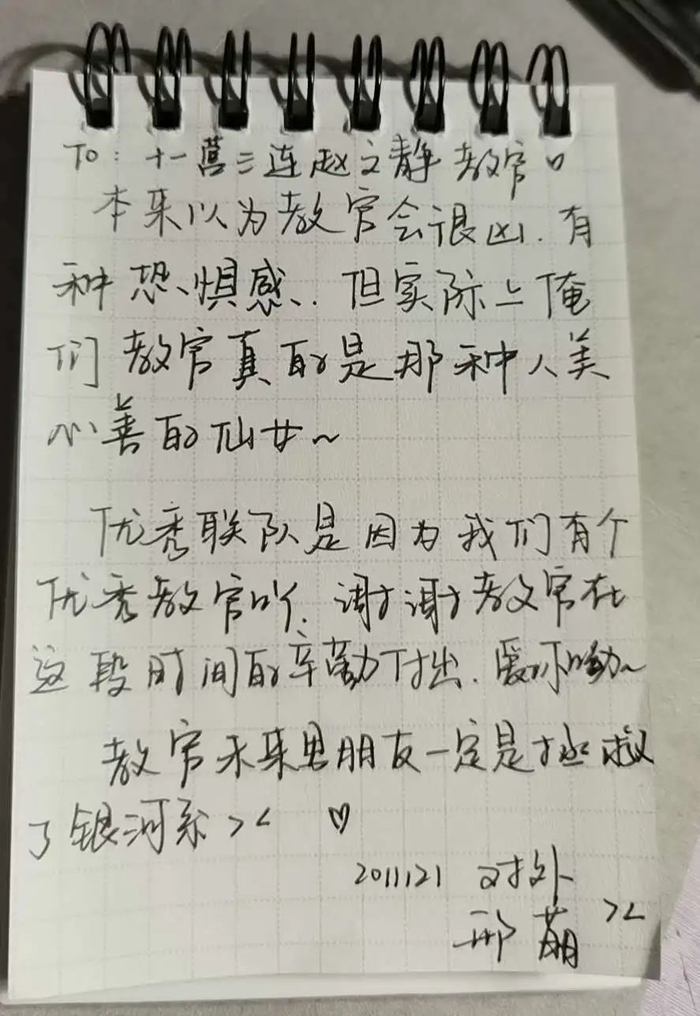 To: 十一营三连赵文静教官♡
本来以为教官会很凶.有
种恐惧感..但实际上俺
们教官真的是那种人美
心善的仙女~
优秀联队是因为我们有个
优秀教官吖.谢谢教官在
这段时间的辛勤付出.爱你呦~
教官未来男朋友一定是拯救
了银河系 >< ♡
2011121 对外
邢萌 ><